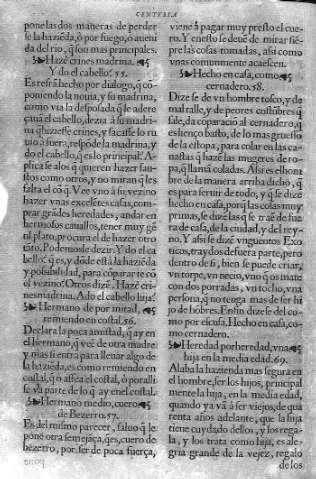 CENTVRIA
pone las dos maneras de perder
se la hazieda, ò por fuego, ò aueni
da del rio, q̃ son mas principales.
Hazé crines madrina.
Y do el cabello? 55.
Es refrã hecho por dialogo, q̃ cõ
poniendo la nouia, y su madrina,
como via la desposada q̃ le adere
çauã el cabello, dezia à su madri
na q̃ hiziesse crines, y sacasse lo ru
uio à fuera, respõde la madrina, y
do el cabello, q̃ es lo principal? A-
plica se alos q̃ quieren hazer faus-
tos como otros, y no miran q̃ les
falta el cõ q̃. Vee vno à su vezino
hazer vnas excelẽtes casas, com-
prar grãdes heredades, andar en
hermosos cauallos, tener muy gẽ
til plato, procura el de hazer otro
tanto. Podemosle dezir: Y do el ca
bello? q̃ es, y dõde està la haziẽda
y possibilidad, para cõpararte cõ
el vezino? Otros dizẽ. Hazé cri-
nes madrina. Ado el cabello hija?
Hermano de por mitad,
remiendo en costal. 56.
Declara la poca amistad, q̃ ay en
el hermano, q̃ veẽ de otra madre
y mas si entra para llenar algo de
la haziẽda, es como remiendo en
costal, q̃ o afea el costal, ò por alli
se và parte de lo q̃ ay enel costal.
Hermano medio, cuero
de Bezerro. 57.
Es del mismo parecer, saluo q̃ le
pone otra semejãça, q̃ es, cuero de
bezerro, por ser de poca fuerça,
viene à pagar muy presto el cue-
ro. Y en esto se deue de mirar siẽ-
pre las cosas tomadas, assi como
vnas comunmente acaescen.
Hecho en casa, como
cernadero. 58.
Dize se de vn hombre tosco, y de
mal talle, y de peores costũbres q̃
sale, da coparació al cernadero, q̃
es lienço basto, de lo mas gruesso
de la estopa, para colar en las ca-
nastas q̃ hazẽ las mugeres de ro-
pa, q̃ llamã coladas. Assi es el hom
bre de la manera arriba dicho, q̃
es para seruir de todo, y q̃ se dize
hecho en casa, porq̃ las cosas muy
primas, se dize las q̃ se traẽ de fue
ra de casa, de la ciudad, y del rey-
no. Y assi se dizẽ vnguentos Exo
ticos, traydos de fuera parte, pero
dentro de si, bien se puede criar,
vn torpe, vn necio, vno q̃ os mate
con dos porradas, vn tocho, vna
persona, q̃ no tenga mas de ser hi
jo de hõbres. En fin dize se del co-
mo por escusa. Hecho en casa, co-
mo cernadero.
Heredad por heredad, vna
hija en la media edad. 69.
Alaba la hazienda mas segura en
el hombre, ser los hijos, principal
mente la hija, en la media edad,
quando ya và à ser viejos, de qua
renta años adelante, que la hija
tiene cuydado dellos, y los rega-
la, y los trata como hija, es ale-
gria grande de la vejez, regalo
de los